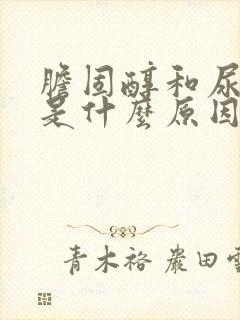 膽固醇和尿
是什麼原因
青木裕 嚴田雪